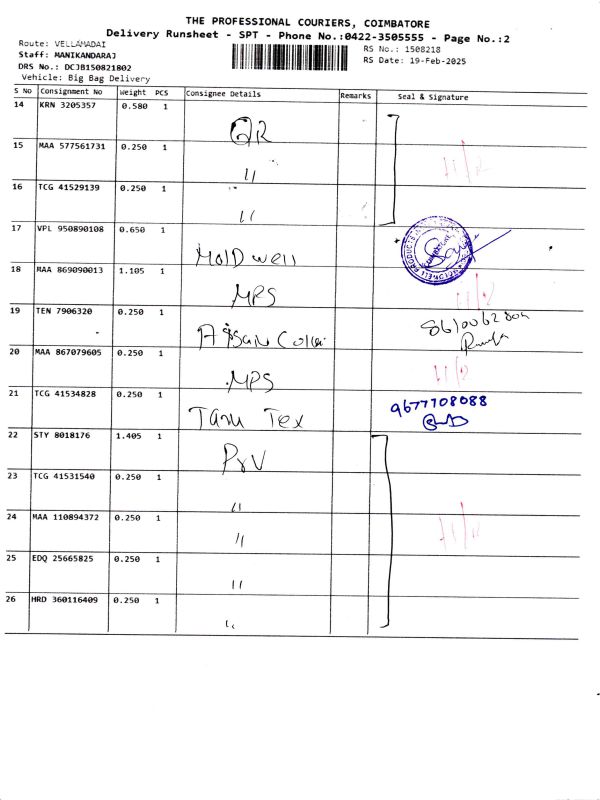 THE PROFESSIONAL COURIERS, COIMBATORE
Delivery Runsheet - SPT - Phone No.:0422-3505555 - Page No.:2
Route: VELLAMADAI
Staff: MANIKANDARAJ
DRS No.: DCJB150821802
Vehicle: Big Bag Delivery
RS No.: 1508218
RS Date: 19-Feb-2025
S No Consignment No Weight PCS Consignee Details Remarks Seal & Signature
14 KRN 3205357 0.580 1 QR
15 MAA 577561731 0.250 1 "
16 TCG 41529139 0.250 1 "
17 VPL 950890108 0.650 1 MolD well
18 MAA 869090013 1.105 1 MPS
19 TEN 7906320 0.250 1
20 MAA 867079605 0.250 1 MPS
21 TCG 41534828 0.250 1 Taru Tex 9677708088
22 STY 8018176 1.405 1 PrV
23 TCG 41531540 0.250 1 "
24 MAA 110894372 0.250 1 "
25 EDQ 25665825 0.250 1 "
26 HRD 360116409 0.250 1 "